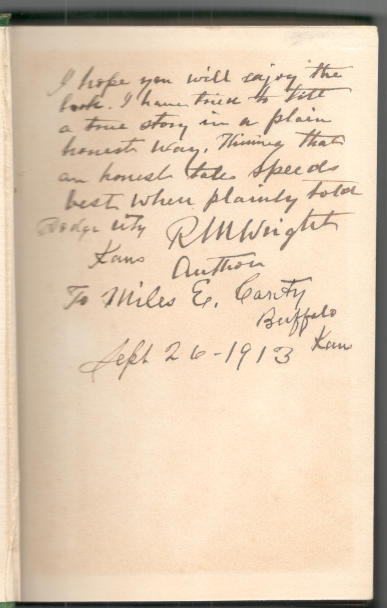 I hope you will enjoy the
book. I have tried to tell
a true story in a plain
honest way. Thinking that
an honest tale speeds
best when plainly told
Dodge City R M Wright
Kans Author
To Miles E. Carity
Buffalo
Sept 26-1913 Kan